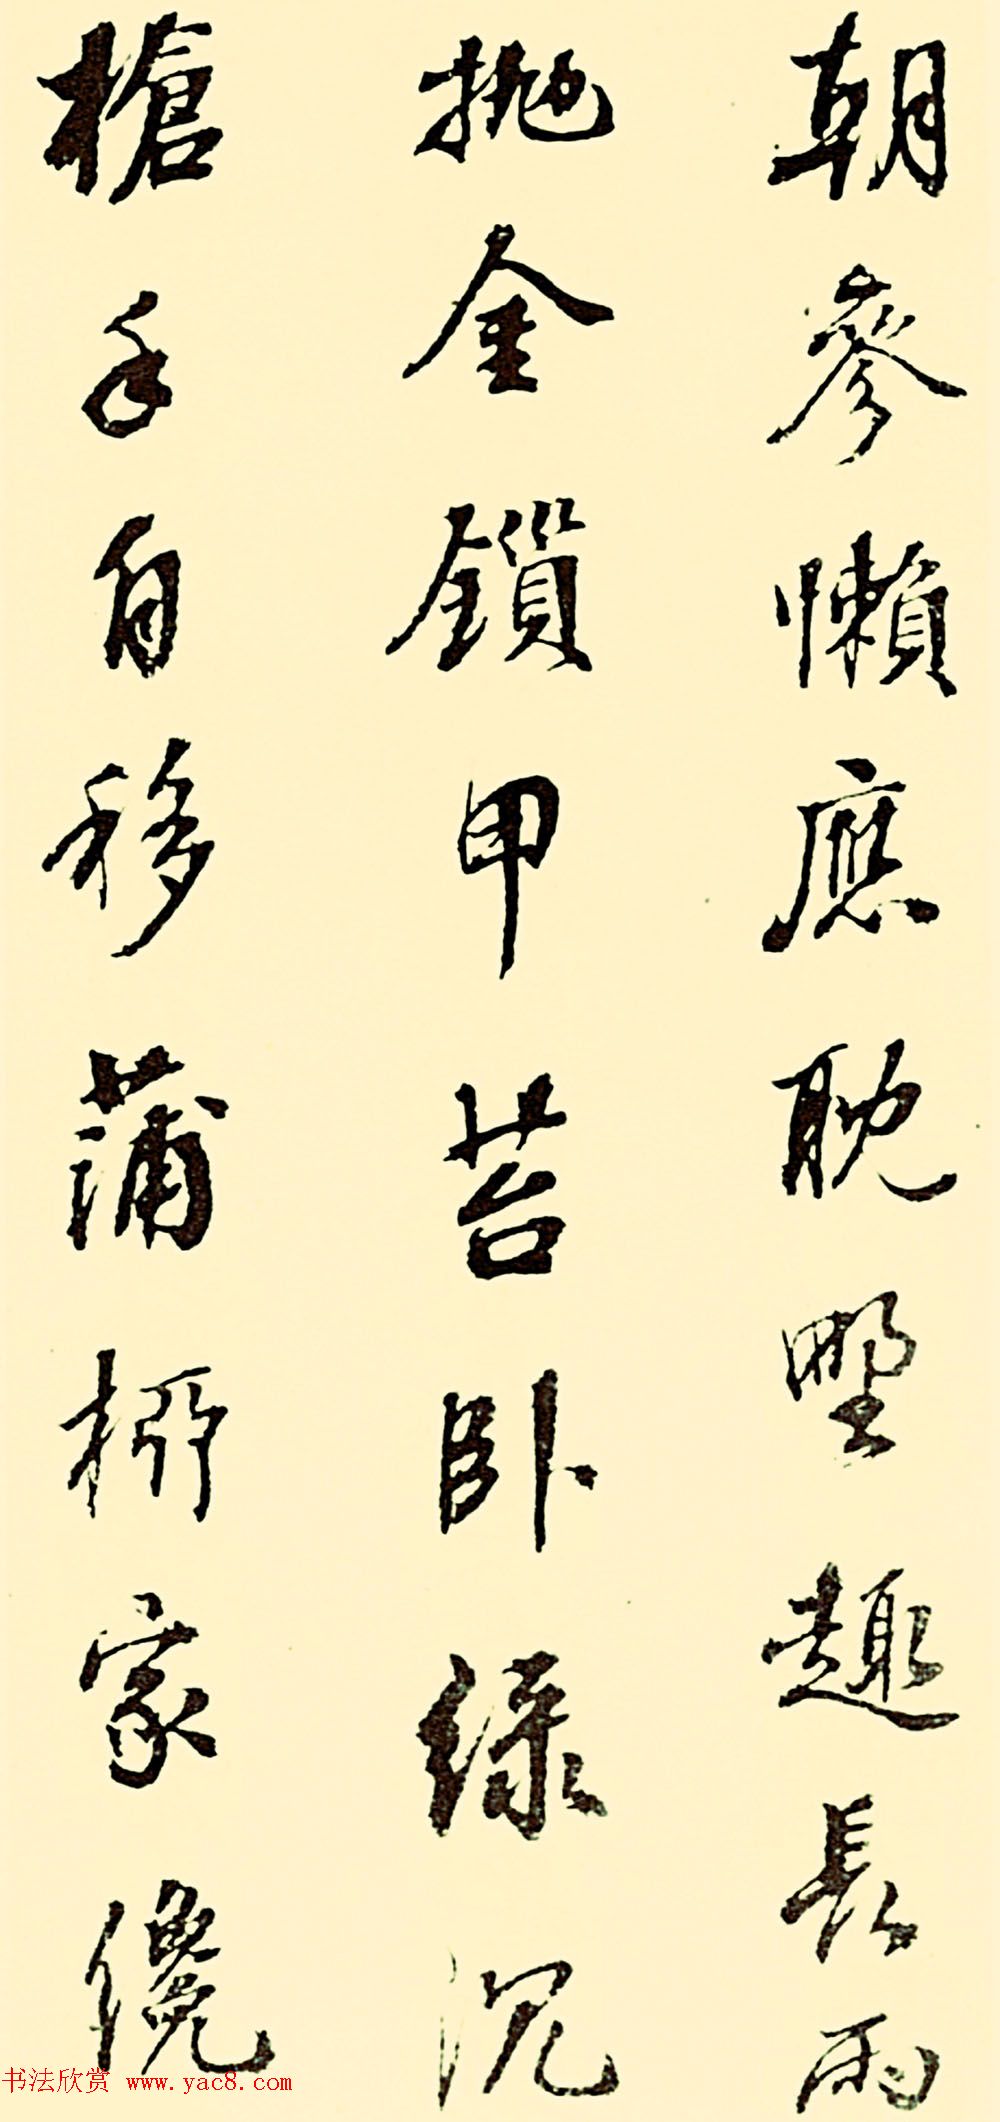 朝參懶應耽野趣長雨
抛金鎖甲苔卧緑沉
槍手自移蒲栁家纔
书法欣赏 www.yac8.com